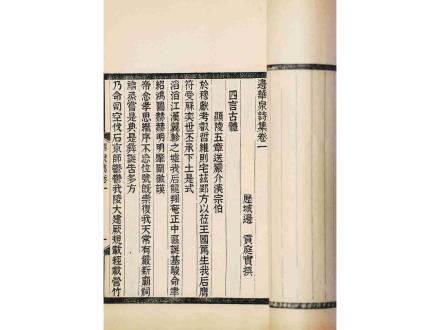 邊華泉詩集卷一
歷城邊 貢庭實撰
四言古體
顯陵五章送嚴介溪宗伯
於穆獻考叡哲維則宅茲郢方以莅王國篤生我后膺
符受籙奕世丕承下土是式
滔滔江漢翼軫之墟我后龍翔奄正中區誕基駿命聿
紹鴻圖赫赫明明肇闢謨
帝念孝思繼序不忘位號旣崇復我天常有嚴新廟祠
禴蒸嘗是典是彝誕告多方
乃命司空伐石京師鬱鬱我陵大建厥規載經載營竹